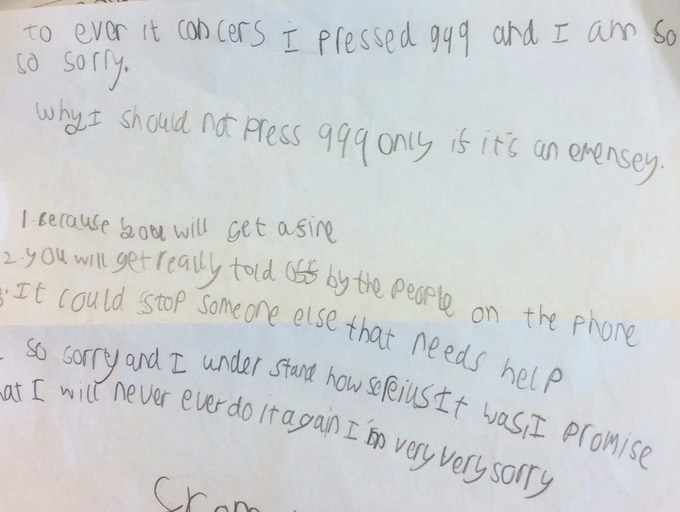 to ever it concers I pressed 999 and I am so
so sorry.
why I should not press 999 only if it's an emensey.
1. Because you will get a fine
2. you will get really told off by the people on the phone
3. It could stop someone else that needs help
so sorry and I under stand how sereius It was, I promise
hat I will never ever do it again I'm very very sorry
From